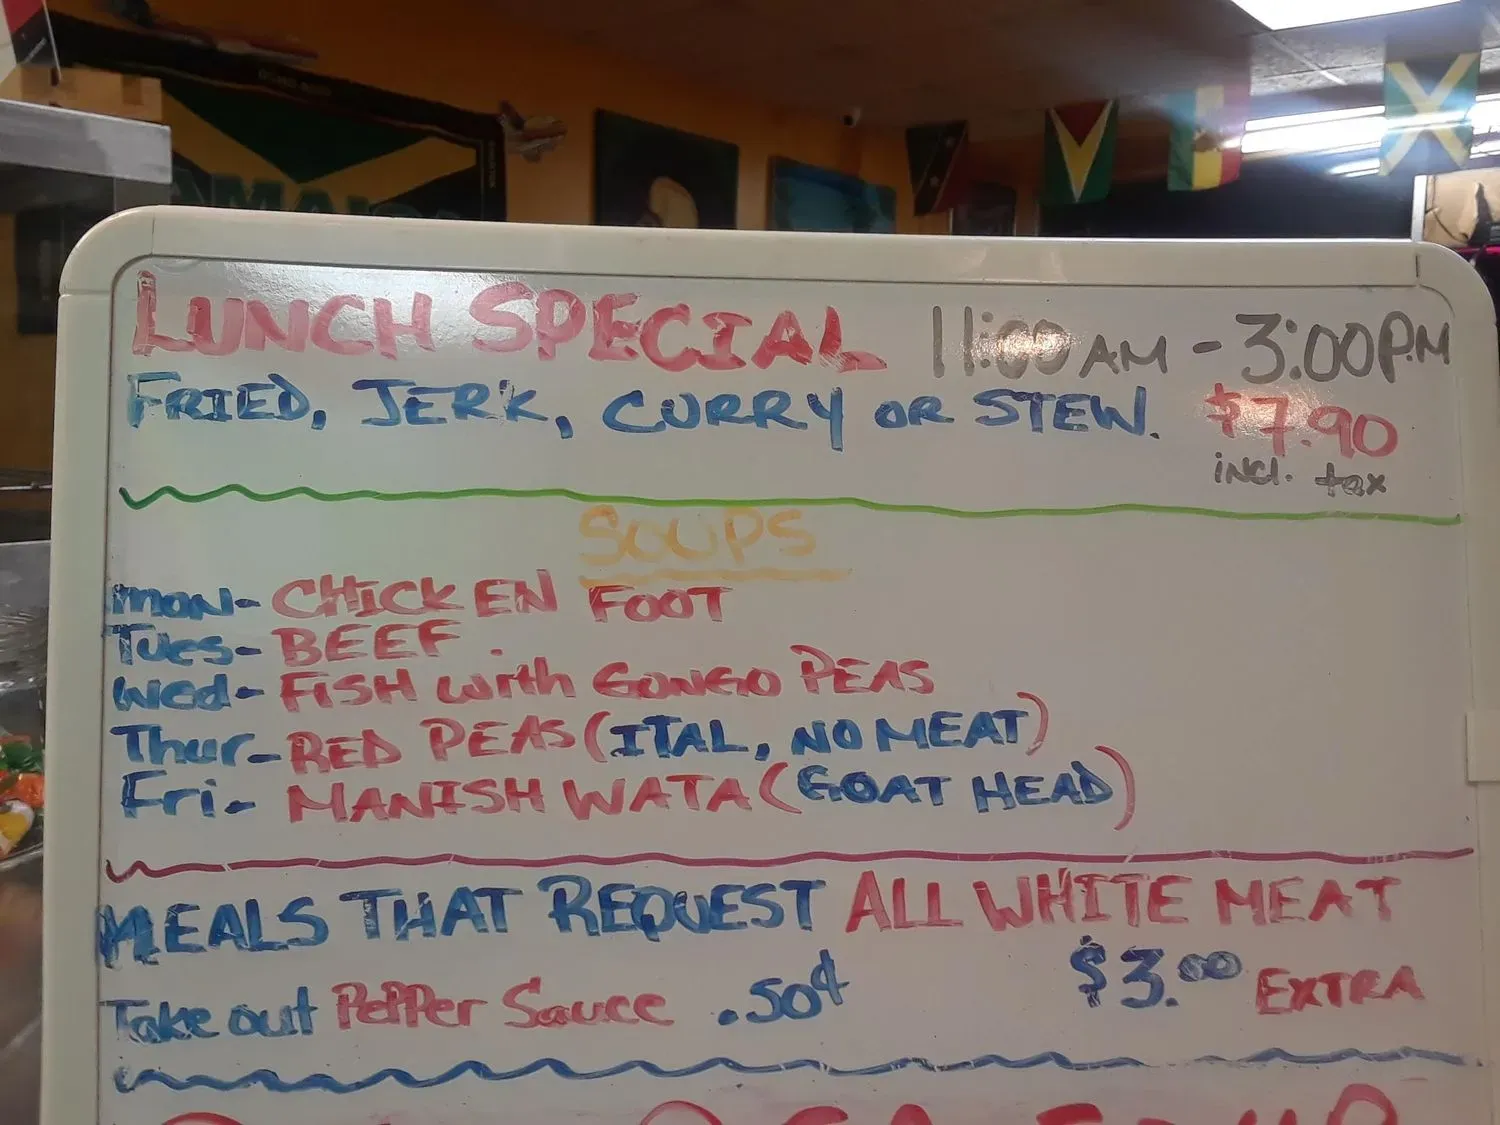 LUNCH SPECIAL 11:00 AM - 3:00 P.M
FRIED, JERK, CURRY OR STEW. $7.90
incl. tax
SOUPS
MON- CHICKEN FOOT
Tues- BEEF.
Wed- FISH with GONGO PEAS
Thur- RED PEAS (ITAL, NO MEAT)
Fri- MANISH WATA (GOAT HEAD)
MEALS THAT REQUEST ALL WHITE MEAT
$3.00 EXTRA
Take out PePPer Sauce .50¢